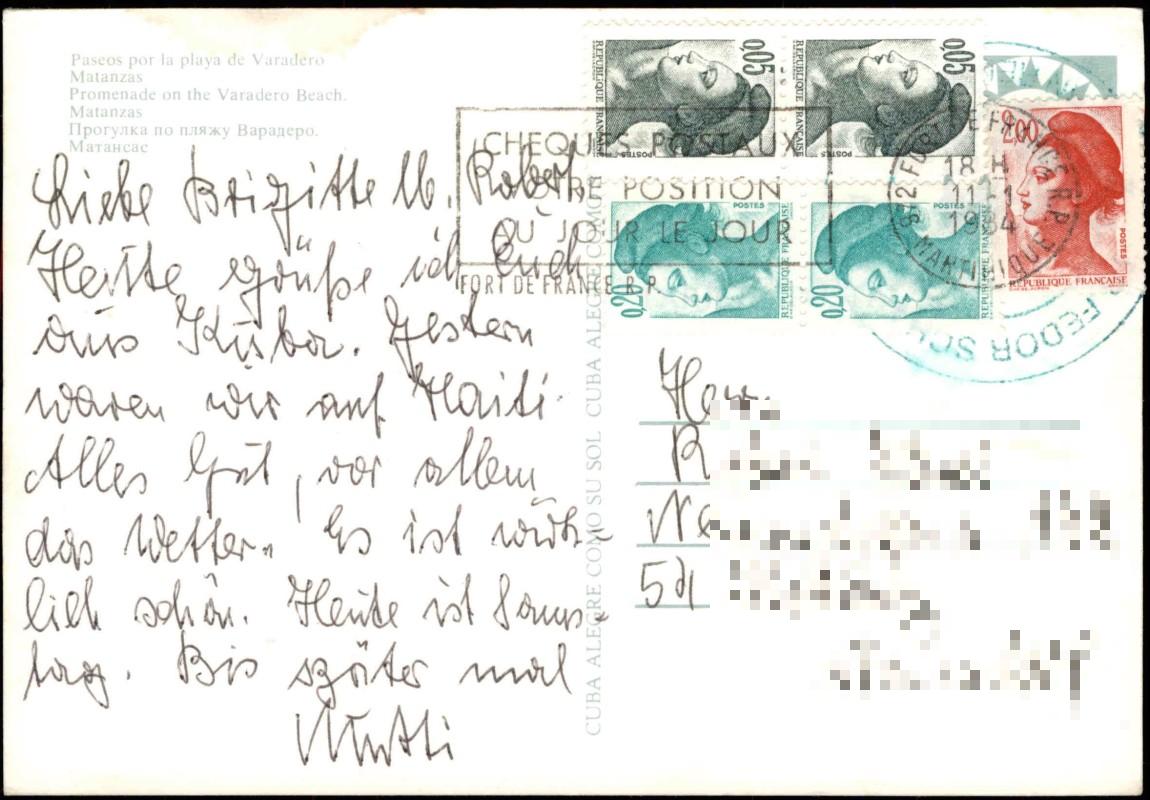 Paseos por la playa de Varadero
Matanzas
Promenade on the Varadero Beach.
Matanzas
Прогулка по пляжу Варадеро.
Матансас
Liebe Brigitte u. Robert
Heute grüße ich Euch
aus Kuba. Gestern
waren wir auf Haiti.
Alles Gut, vor allem
das Wetter. Es ist wirk-
lich schön. Heute ist Sams-
tag. Bis später mal
Mutti
CUBA ALEGRE COMO SU SOL CUBA ALEGRE COMO
REPUBLIQUE FRANÇAISE
POSTES
0,05
REPUBLIQUE FRANÇAISE
POSTES
0,05
POSTES
0,20
REPUBLIQUE FRANÇAISE
POSTES
0,20
REPUBLIQUE FRANÇAISE
2,00
POSTES
REPUBLIQUE FRANÇAISE
CHEQUES POSTAUX
POSITION
AU JOUR LE JOUR
FORT DE FRANCE R.P.
972 FORT DE FRANCE R.P.
18 H
11-1
1984
MARTINIQUE
FEDOR
Herr
54